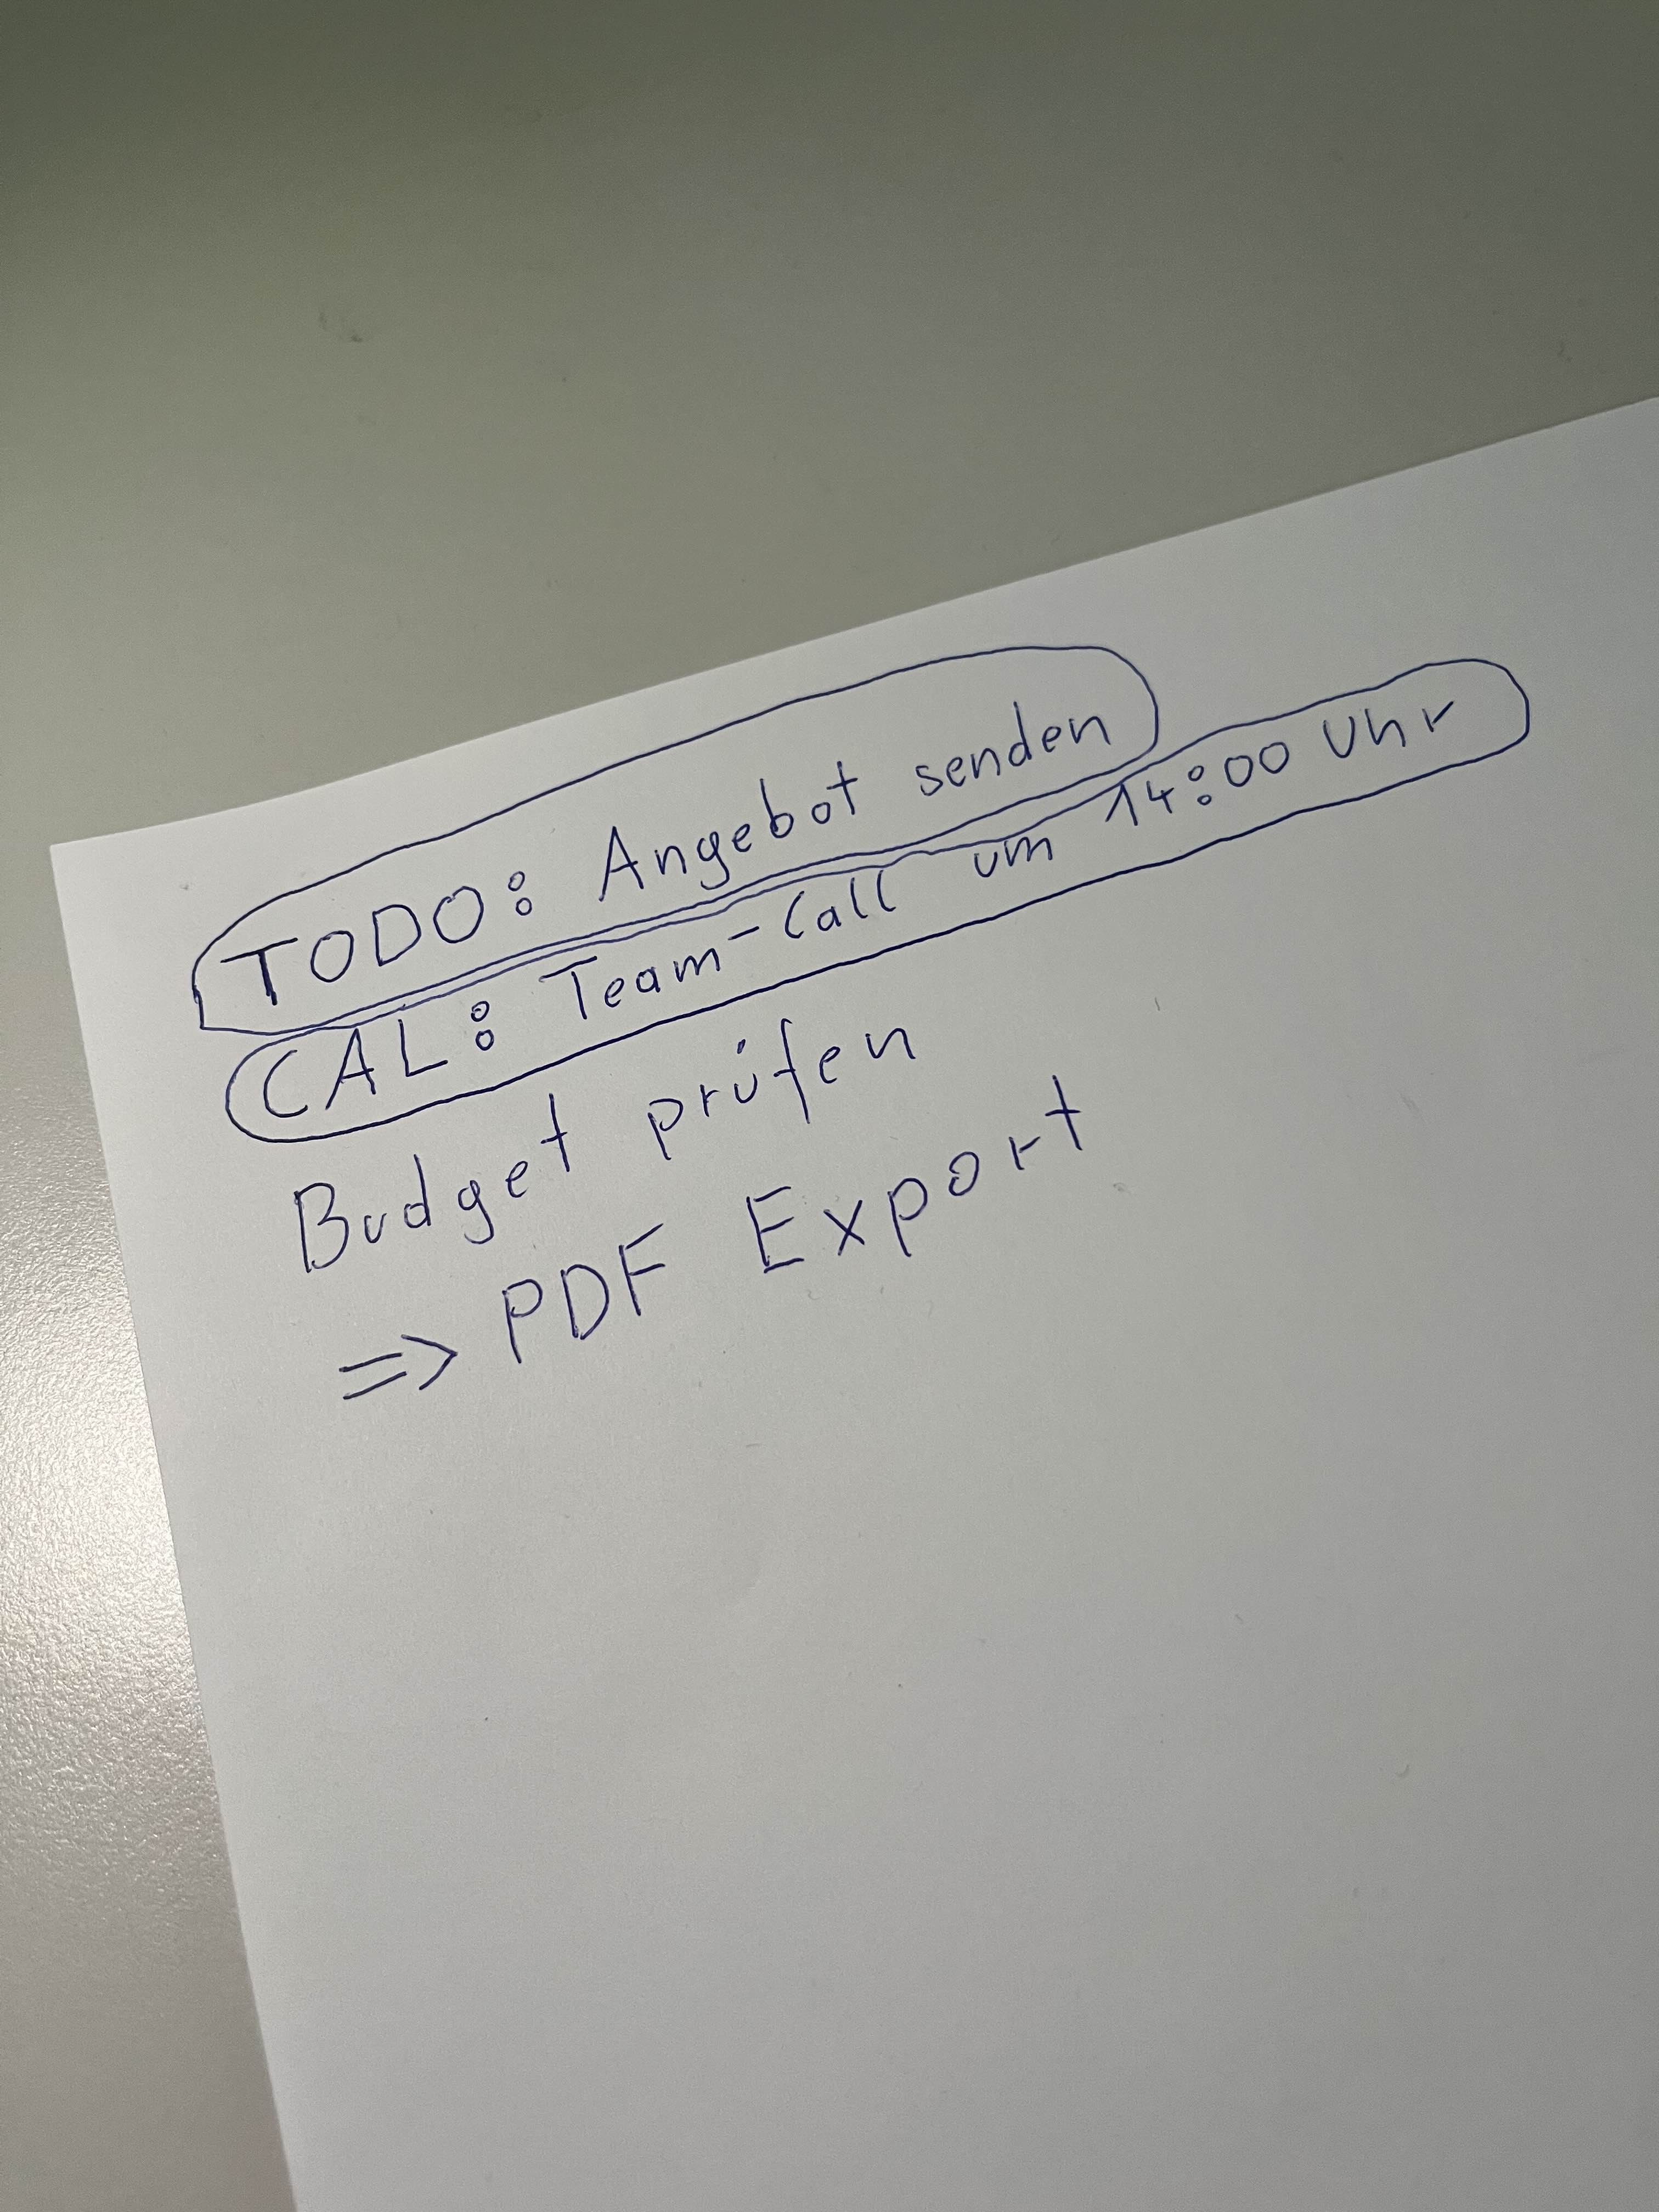 TODO: Angebot senden
CAL: Team-Call um 14:00 Uhr
Budget prüfen
=> PDF Export